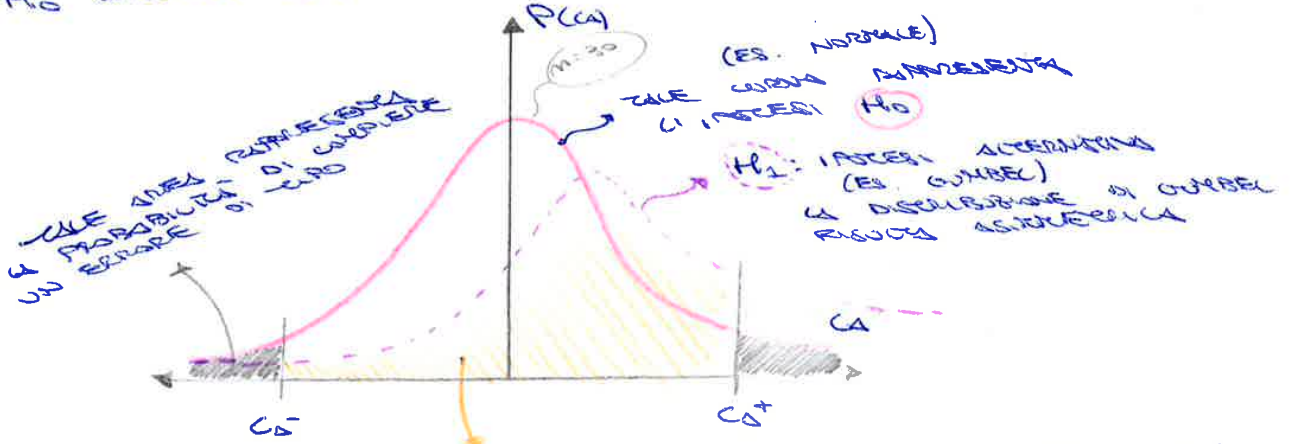 H₀
P(CA)
n=30
(ES. NORMALE)
TALE CURVA RAPPRESENTA
L'IPOTESI H₀
H₁: IPOTESI ALTERNATIVA
(ES. GUMBEL)
LA DISTRIBUZIONE DI GUMBEL
RISULTA ASIMMETRICA
TALE AREA RAPPRESENTA
LA PROBABILITÀ DI COMPIERE
UN ERRORE DI TIPO
CA
CA⁻
CA⁺